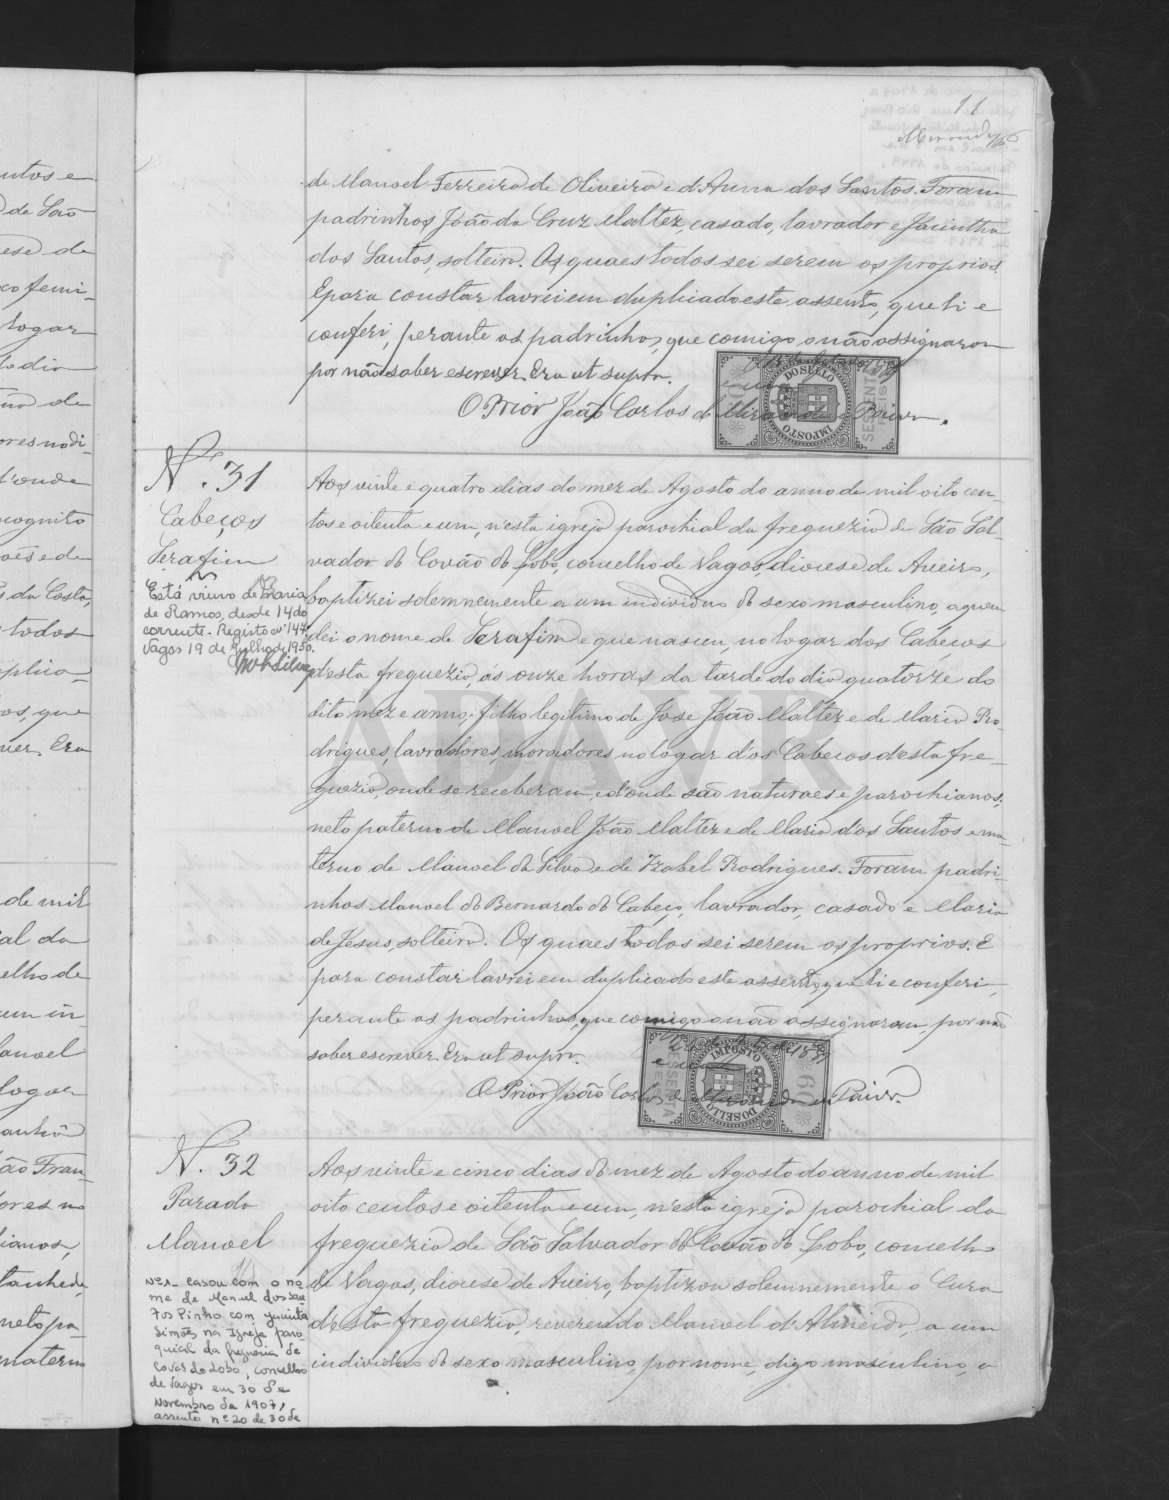 11
de Manoel Ferreira de Oliveira e d'Anna dos Santos. Foram
padrinhos João da Cruz Maltez, casado, lavrador e Jacintha
dos Santos, solteira. Os quaes todos sei serem os proprios.
E para constar lavrei em duplicado este assento, que li e
conferi, perante os padrinhos, que comigo o não assignaram
por não saber escrever. Era ut supra.
O Prior João Carlos de Miranda e Paiva.
IMPOSTO DO SELLO
SESSENTA REIS
N.º 31
Cabeços
Serafim
Está viuvo de Maria
de Ramos, desde 14 do
corrente. Registo nº 147.
Vagos 19 de Julho de 1950.
Aos vinte e quatro dias do mez de Agosto do anno de mil oito cen-
tos e oitenta e um, n'esta igreja parochial da freguezia de São Sal-
vador do Covão do Lobo, concelho de Vagos, diocese de Aveiro,
baptizei solemnemente a um individuo do sexo masculino, a quem
dei o nome de Serafim e que nasceu, no logar dos Cabeços
desta freguezia, ás onze horas da tarde do dia quatorze do
dito mez e anno, filho legitimo de Jose João Maltez e de Maria Ro-
drigues, lavradores, moradores no logar d'os Cabeços desta fre-
guezia, onde se receberam, e d'onde são naturaes e parochianos,
neto paterno de Manoel João Maltez e de Maria d'os Santos e ma-
terno de Manoel da Silva e de Izabel Rodrigues. Foram padri-
nhos Manoel do Bernardo do Cabeço, lavrador, casado e Maria
de Jesus, solteira. Os quaes todos sei serem os proprios. E
para constar lavrei em duplicado este assento, que li e conferi,
perante os padrinhos, que comigo o não assignaram, por não
saber escrever. Era ut supra.
O Prior João Carlos de Miranda e Paiva.
IMPOSTO DO SELLO
SESSENTA REIS
60
N. 32
Parada
Manoel
Nº1 - Casou com o no
me de Manuel dos San
tos Pinho com Jacinta
Simões na Igreja paro
quial da freguesia de
Covão do Lobo, concelho
de Vagos em 30 de
Novembro de 1907,
assento nº 20 de 30 de
Aos vinte e cinco dias do mez de Agosto do anno de mil
oito centos e oitenta e um, n'esta igreja parochial da
freguezia de São Salvador do Covão do Lobo, concelho
de Vagos, diocese de Aveiro, baptizou solemnemente o Cura
d'esta freguezia, reverendo Manoel d'Almeida, a um
individuo do sexo masculino, por nome, digo masculino, a
ADAVR